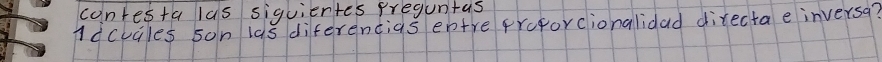 contesta las siguientes preguntas
1 ¿cuáles son las diferencias entre proporcionalidad directa e inversa?